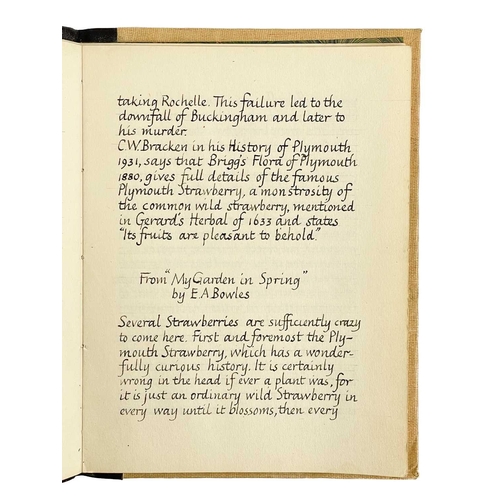 taking Rochelle. This failure led to the
downfall of Buckingham and later to
his murder.
C.W. Bracken in his History of Plymouth
1931, says that Briggs Flora of Plymouth
1880, gives full details of the famous
Plymouth Strawberry, a monstrosity of
the common wild strawberry, mentioned
in Gerard's Herbal of 1633 and states
"Its fruits are pleasant to behold."
From "My Garden in Spring"
by E A Bowles
Several Strawberries are sufficiently crazy
to come here. First and foremost the Ply-
mouth Strawberry, which has a wonder-
fully curious history. It is certainly
wrong in the head if ever a plant was, for
it is just an ordinary wild Strawberry in
every way until it blossoms, then every